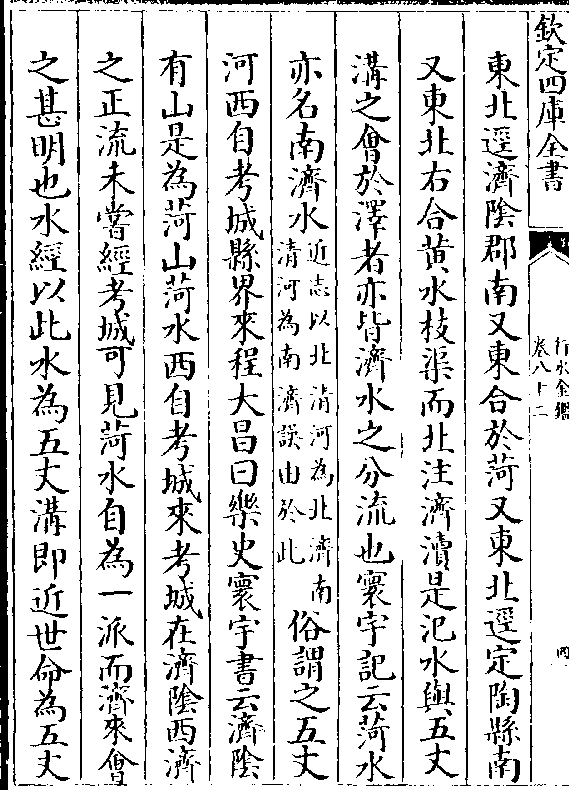 欽定四庫全書
行水金鑑
卷八十二
四
東北逕濟隂郡南又東合於菏又東北逕定陶縣南
又東北右合黄水枝渠而北注濟瀆是汜水與五丈
溝之會於澤者亦皆濟水之分流也寰宇記云菏水
亦名南濟水近志以北清河為北濟南清河為南濟誤由於此俗謂之五丈
河西自考城縣界來程大昌曰樂史寰宇書云濟隂
有山是為菏山菏水西自考城來考城在濟隂西濟
之正流未嘗經考城可見菏水自為一派而濟來會
之甚明也水經以此水為五丈溝即近世命為五丈